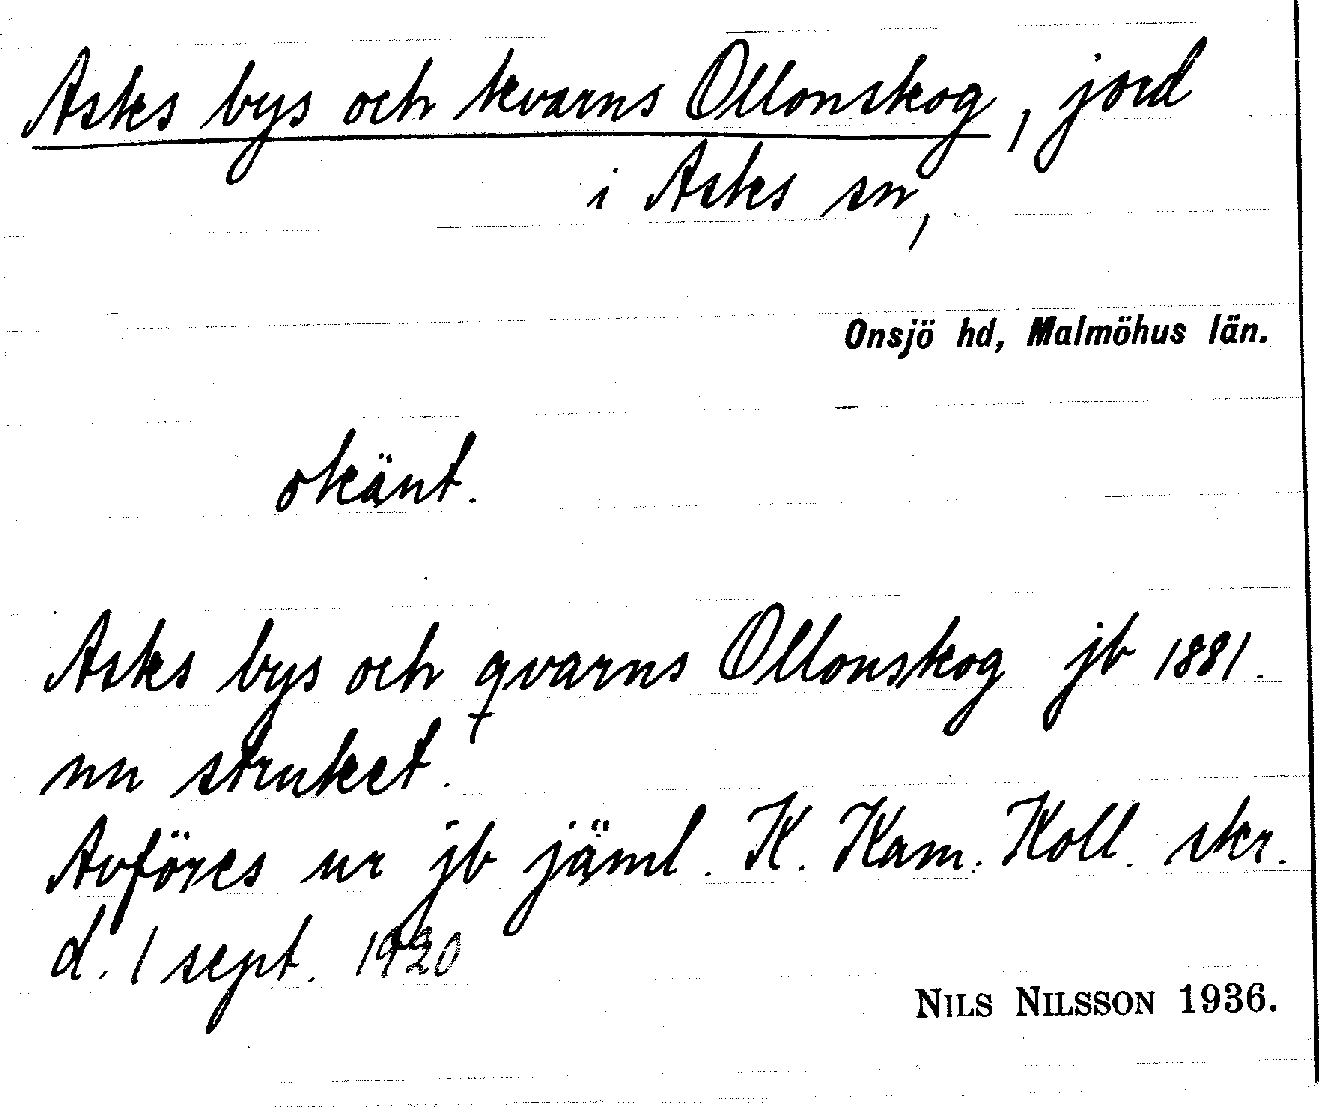 Asks bys och kvarns Ollonskog, jord
i Asks sn,
Onsjö hd, Malmöhus län.
okänt.
Asks bys och qvarns Ollonskog jb 1881.
nu struket.
Avföres ur jb jäml. K. Kam. Koll. skr.
d. 1 sept. 1920
NILS NILSSON 1936.